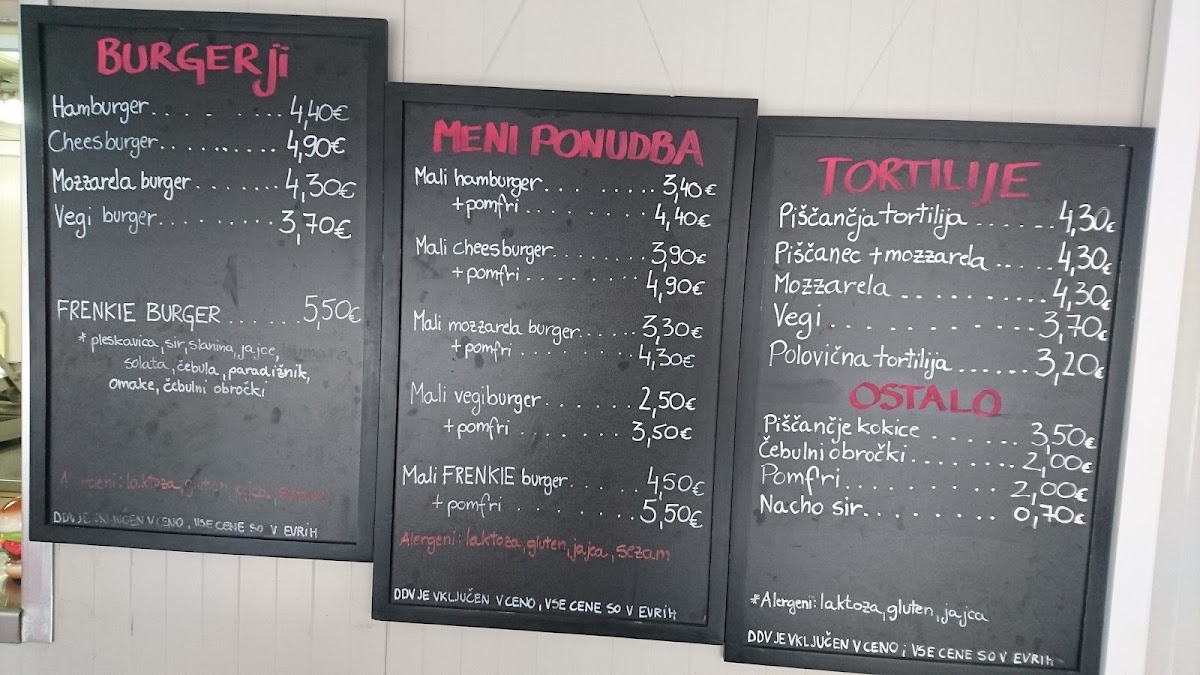 BURGERJi
Hamburger. . . . . . . . 4,40€
Cheesburger. . . . . . . . . 4,90€
Mozzarela burger. . . . . . . . 4,30€
Vegi burger. . . . . . . . . . . 3,70€
FRENKIE BURGER . . . . . . 5,50€
* pleskavica, sir, slanina, jajce,
solata, čebula, paradižnik,
omake, čebulni obročki
Alergeni: laktoza, gluten, jajca, sezam
DDV JE VKLJUČEN V CENO, VSE CENE SO V EVRIH
MENI PONUDBA
Mali hamburger. . . . . . . . . 3,40€
+ pomfri . . . . . . . . . . . 4,40€
Mali cheesburger. . . . . . . . 3,90€
+ pomfri . . . . . . . . . . . 4,90€
Mali mozzarela burger. . . . . . 3,30€
+ pomfri . . . . . . . . . . . 4,30€
Mali vegiburger. . . . . . . . 2,50€
+ pomfri . . . . . . . . . . . 3,50€
Mali FRENKIE burger. . . . . . 4,50€
+ pomfri . . . . . . . . . . . 5,50€
Alergeni: laktoza, gluten, jajca, sezam
DDV JE VKLJUČEN V CENO, VSE CENE SO V EVRIH
TORTILIJE
Piščančja tortilija . . . . . . 4,30€
Piščanec + mozzarela . . . . . 4,30€
Mozzarela . . . . . . . . . . 4,30€
Vegi . . . . . . . . . . . . . 3,70€
Polovična tortilija . . . . . . 3,20€
OSTALO
Piščančje kokice . . . . . . . 3,50€
Čebulni obročki . . . . . . . . 2,00€
Pomfri . . . . . . . . . . . . 2,00€
Nacho sir. . . . . . . . . . . 0,70€
*Alergeni: laktoza, gluten, jajca
DDV JE VKLJUČEN V CENO, VSE CENE SO V EVRIH